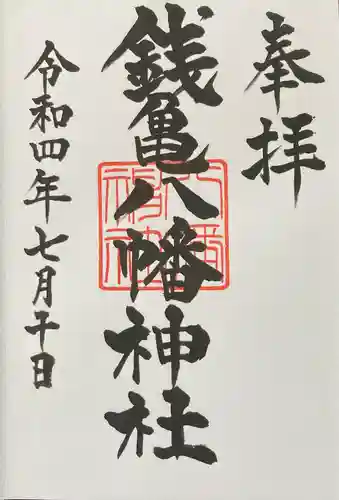 奉拝
銭亀八幡神社
令和四年七月十日